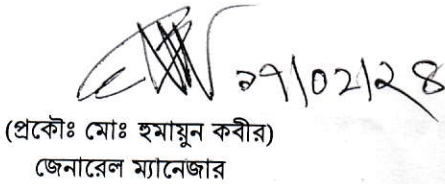 ২৭/০২/২৪
(প্রকৌঃ মোঃ হুমায়ুন কবীর)
জেনারেল ম্যানেজার